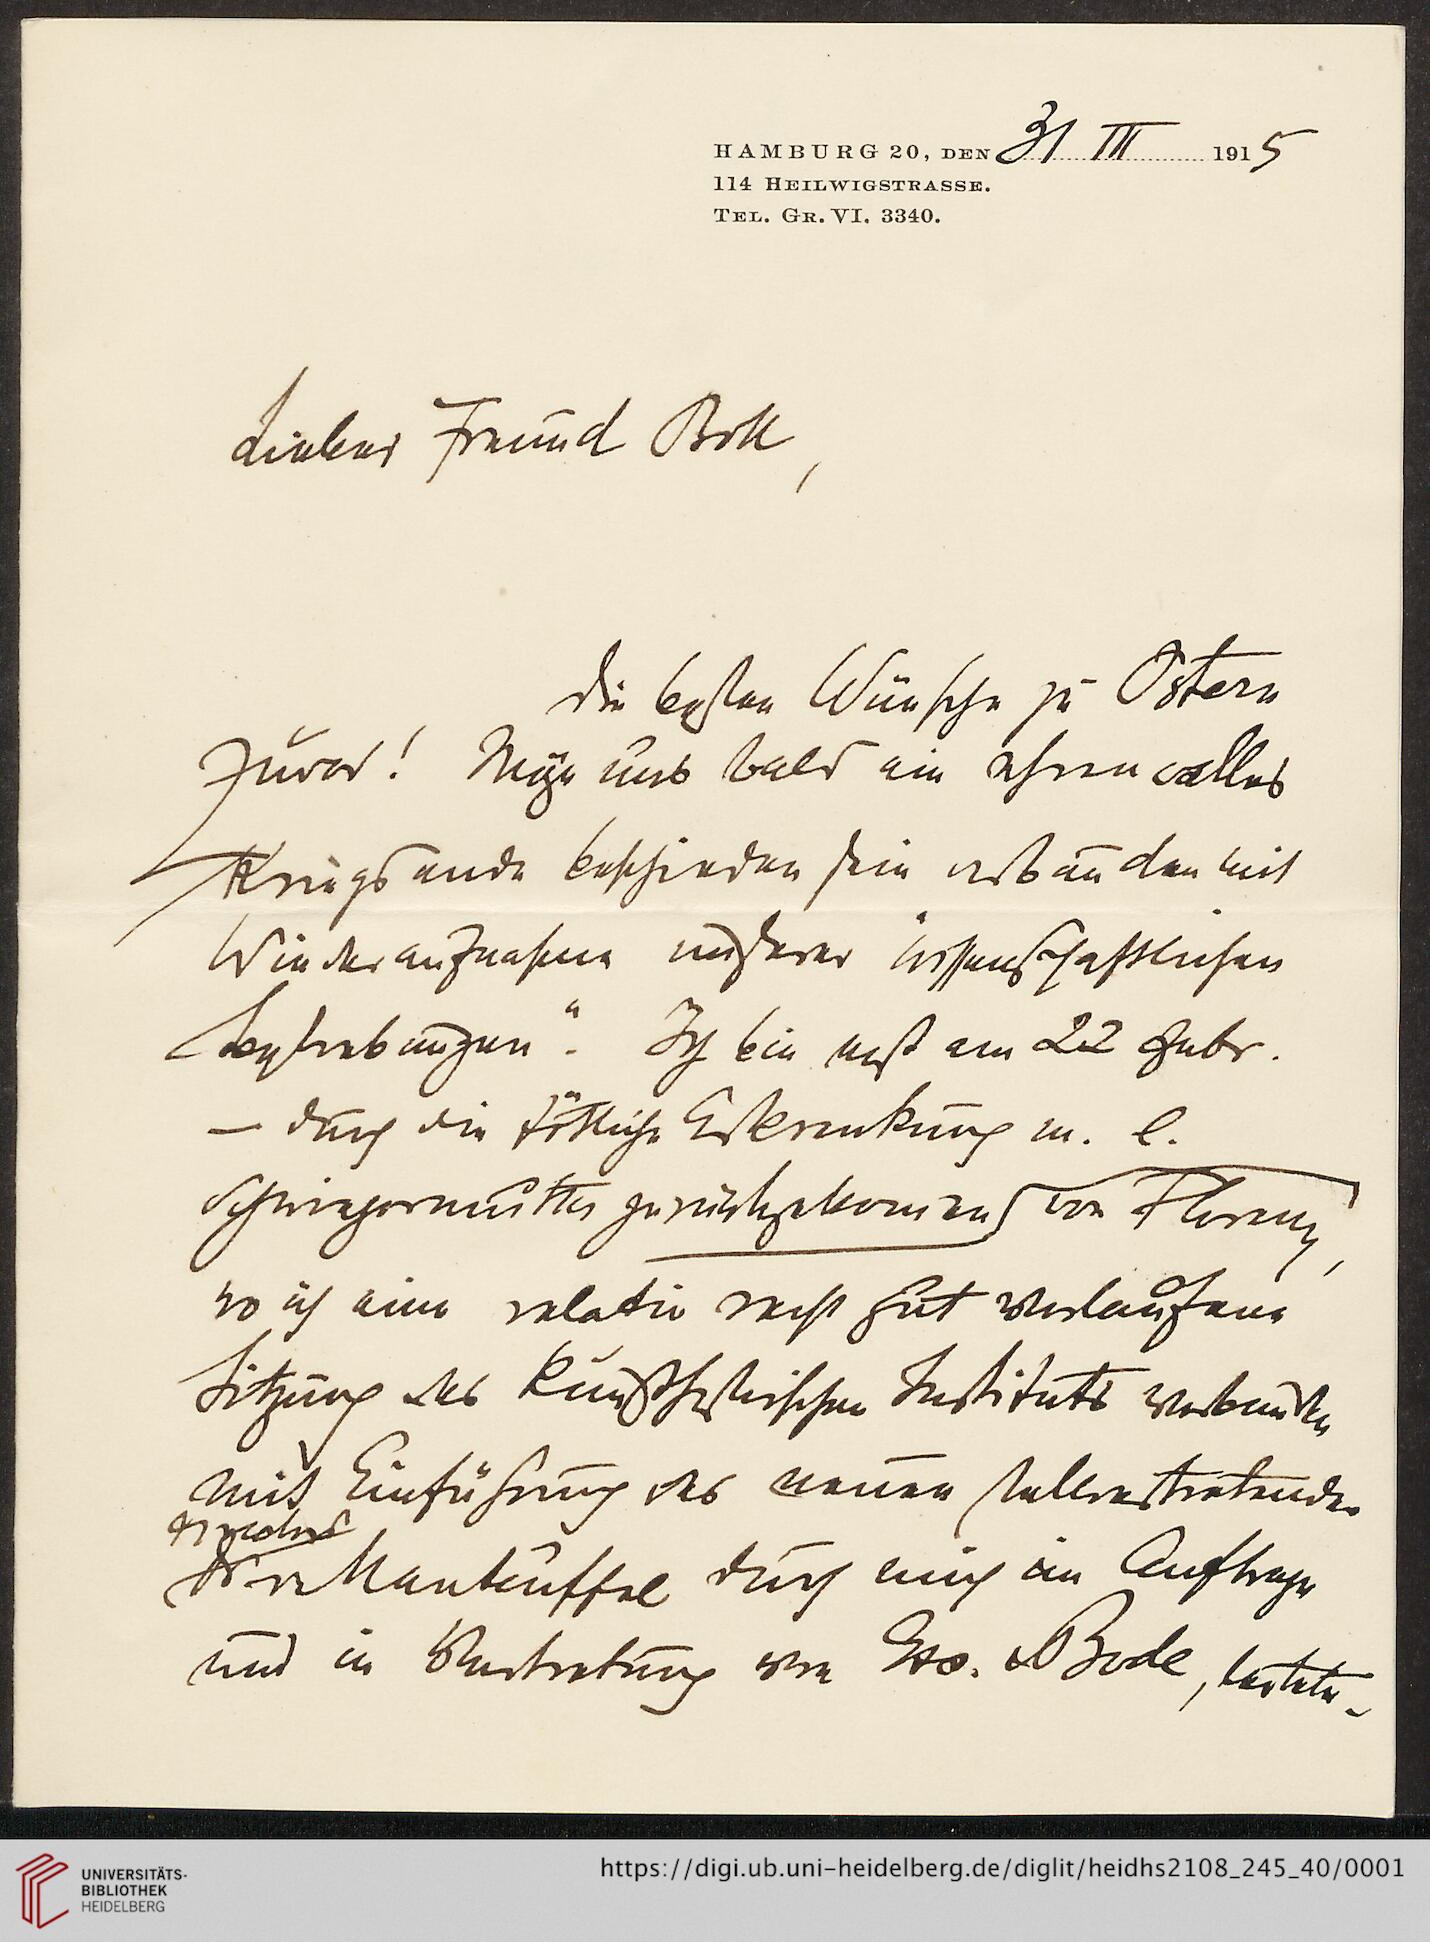 HAMBURG 20, DEN 31 III 1915
114 HEILWIGSTRASSE.
TEL. GR. VI. 3340.
Lieber Freund Boll,
die besten Wünsche zu Ostern
zuvor! Möge uns bald ein ehrenvolles
Kriegsende beschieden sein verbunden mit
Wiederaufnahme unserer „wissenschaftlichen
Bestrebungen“. Ich bin erst am 22 Febr.
– durch die tötliche Erkrankung m. l.
Schwiegermutter zurückgekommen von Florenz,
wo ich eine relativ recht gut verlaufene
Sitzung des Kunsthistorischen Instituts verbunden
mit Einführung des neuen stellvertretenden
Dr v Manteuffel durch mich im Auftrage
und in Vertretung von Exc. v Bode, leitete.
UNIVERSITÄTS-
BIBLIOTHEK
HEIDELBERG
https://digi.ub.uni-heidelberg.de/diglit/heidhs2108_245_40/0001